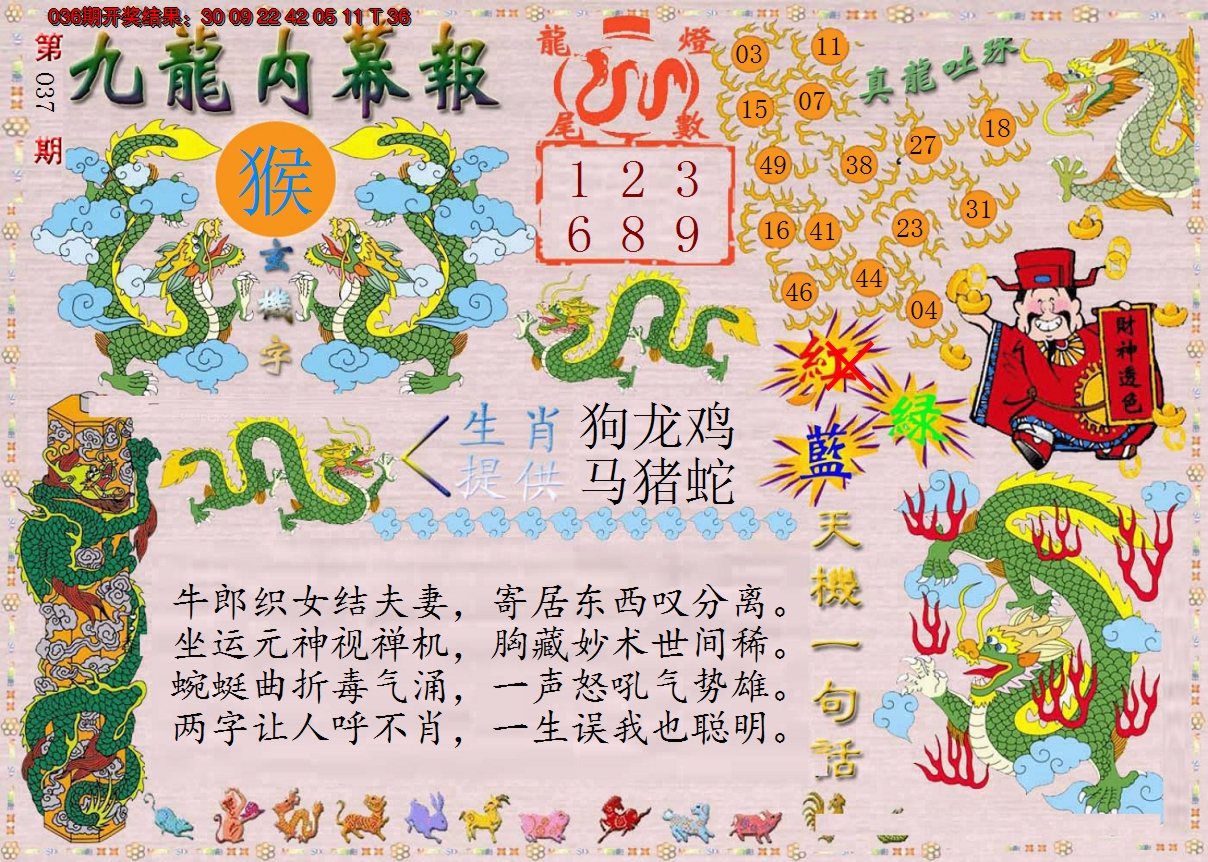 036期开奖结果：30 09 22 42 05 11 T 36
第037期
九龍内幕報
猴
玄機字
龍燈
尾數
1 2 3
6 8 9
真龍吐珠
03 11
15 07
49 38 27 18
16 41 23 31
46 44 04
紅
綠
藍
財神透色
生肖
提供
狗龙鸡
马猪蛇
牛郎织女结夫妻，寄居东西叹分离。
坐运元神视禅机，胸藏妙术世间稀。
蜿蜒曲折毒气涌，一声怒吼气势雄。
两字让人呼不肖，一生误我也聪明。
天機一句話